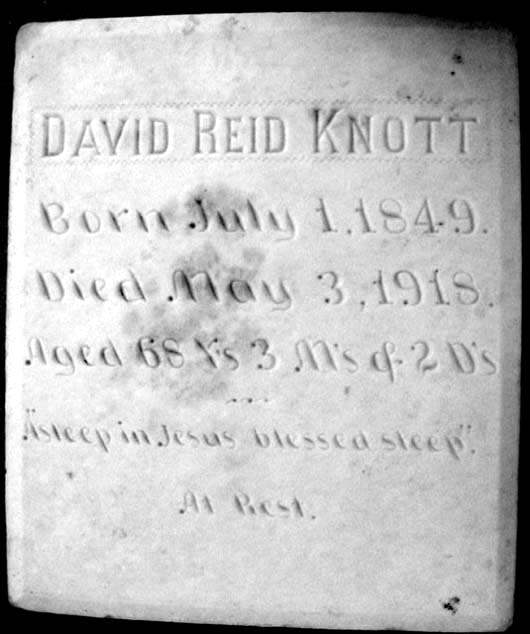 DAVID REID KNOTT
Born July 1, 1849.
Died May 3, 1918.
Aged 68 Y's 3 M's & 2 D's
"Asleep in Jesus blessed sleep".
At Rest.